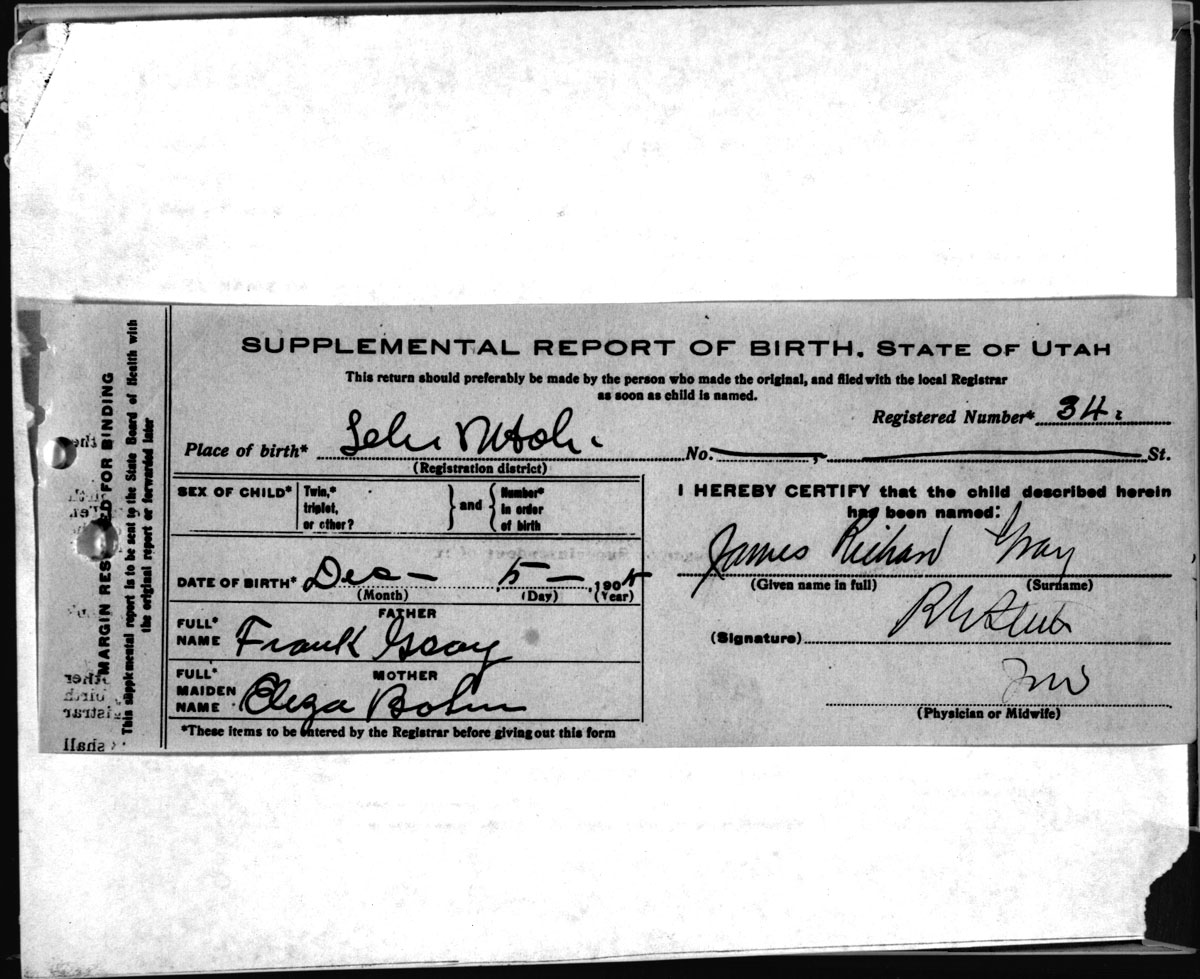 SUPPLEMENTAL REPORT OF BIRTH. STATE OF UTAH
This return should preferably be made by the person who made the original, and filed with the local Registrar
as soon as child is named.
Registered Number* 34
Place of birth* Lehi Utah No. , St.
(Registration district)
SEX OF CHILD* Twin,* triplet, or other? } and { Number* in order of birth
I HEREBY CERTIFY that the child described herein
has been named:
James Richard Gray
(Given name in full) (Surname)
DATE OF BIRTH* Dec — 15 — , 190
(Month) (Day) (Year)
FATHER
FULL* NAME Frank Gray
(Signature)
MOTHER
FULL* MAIDEN NAME Eliza
(Physician or Midwife)
*These items to be entered by the Registrar before giving out this form
MARGIN RESERVED FOR BINDING
This supplemental report is to be sent to the State Board of Health with
the original report or forwarded later